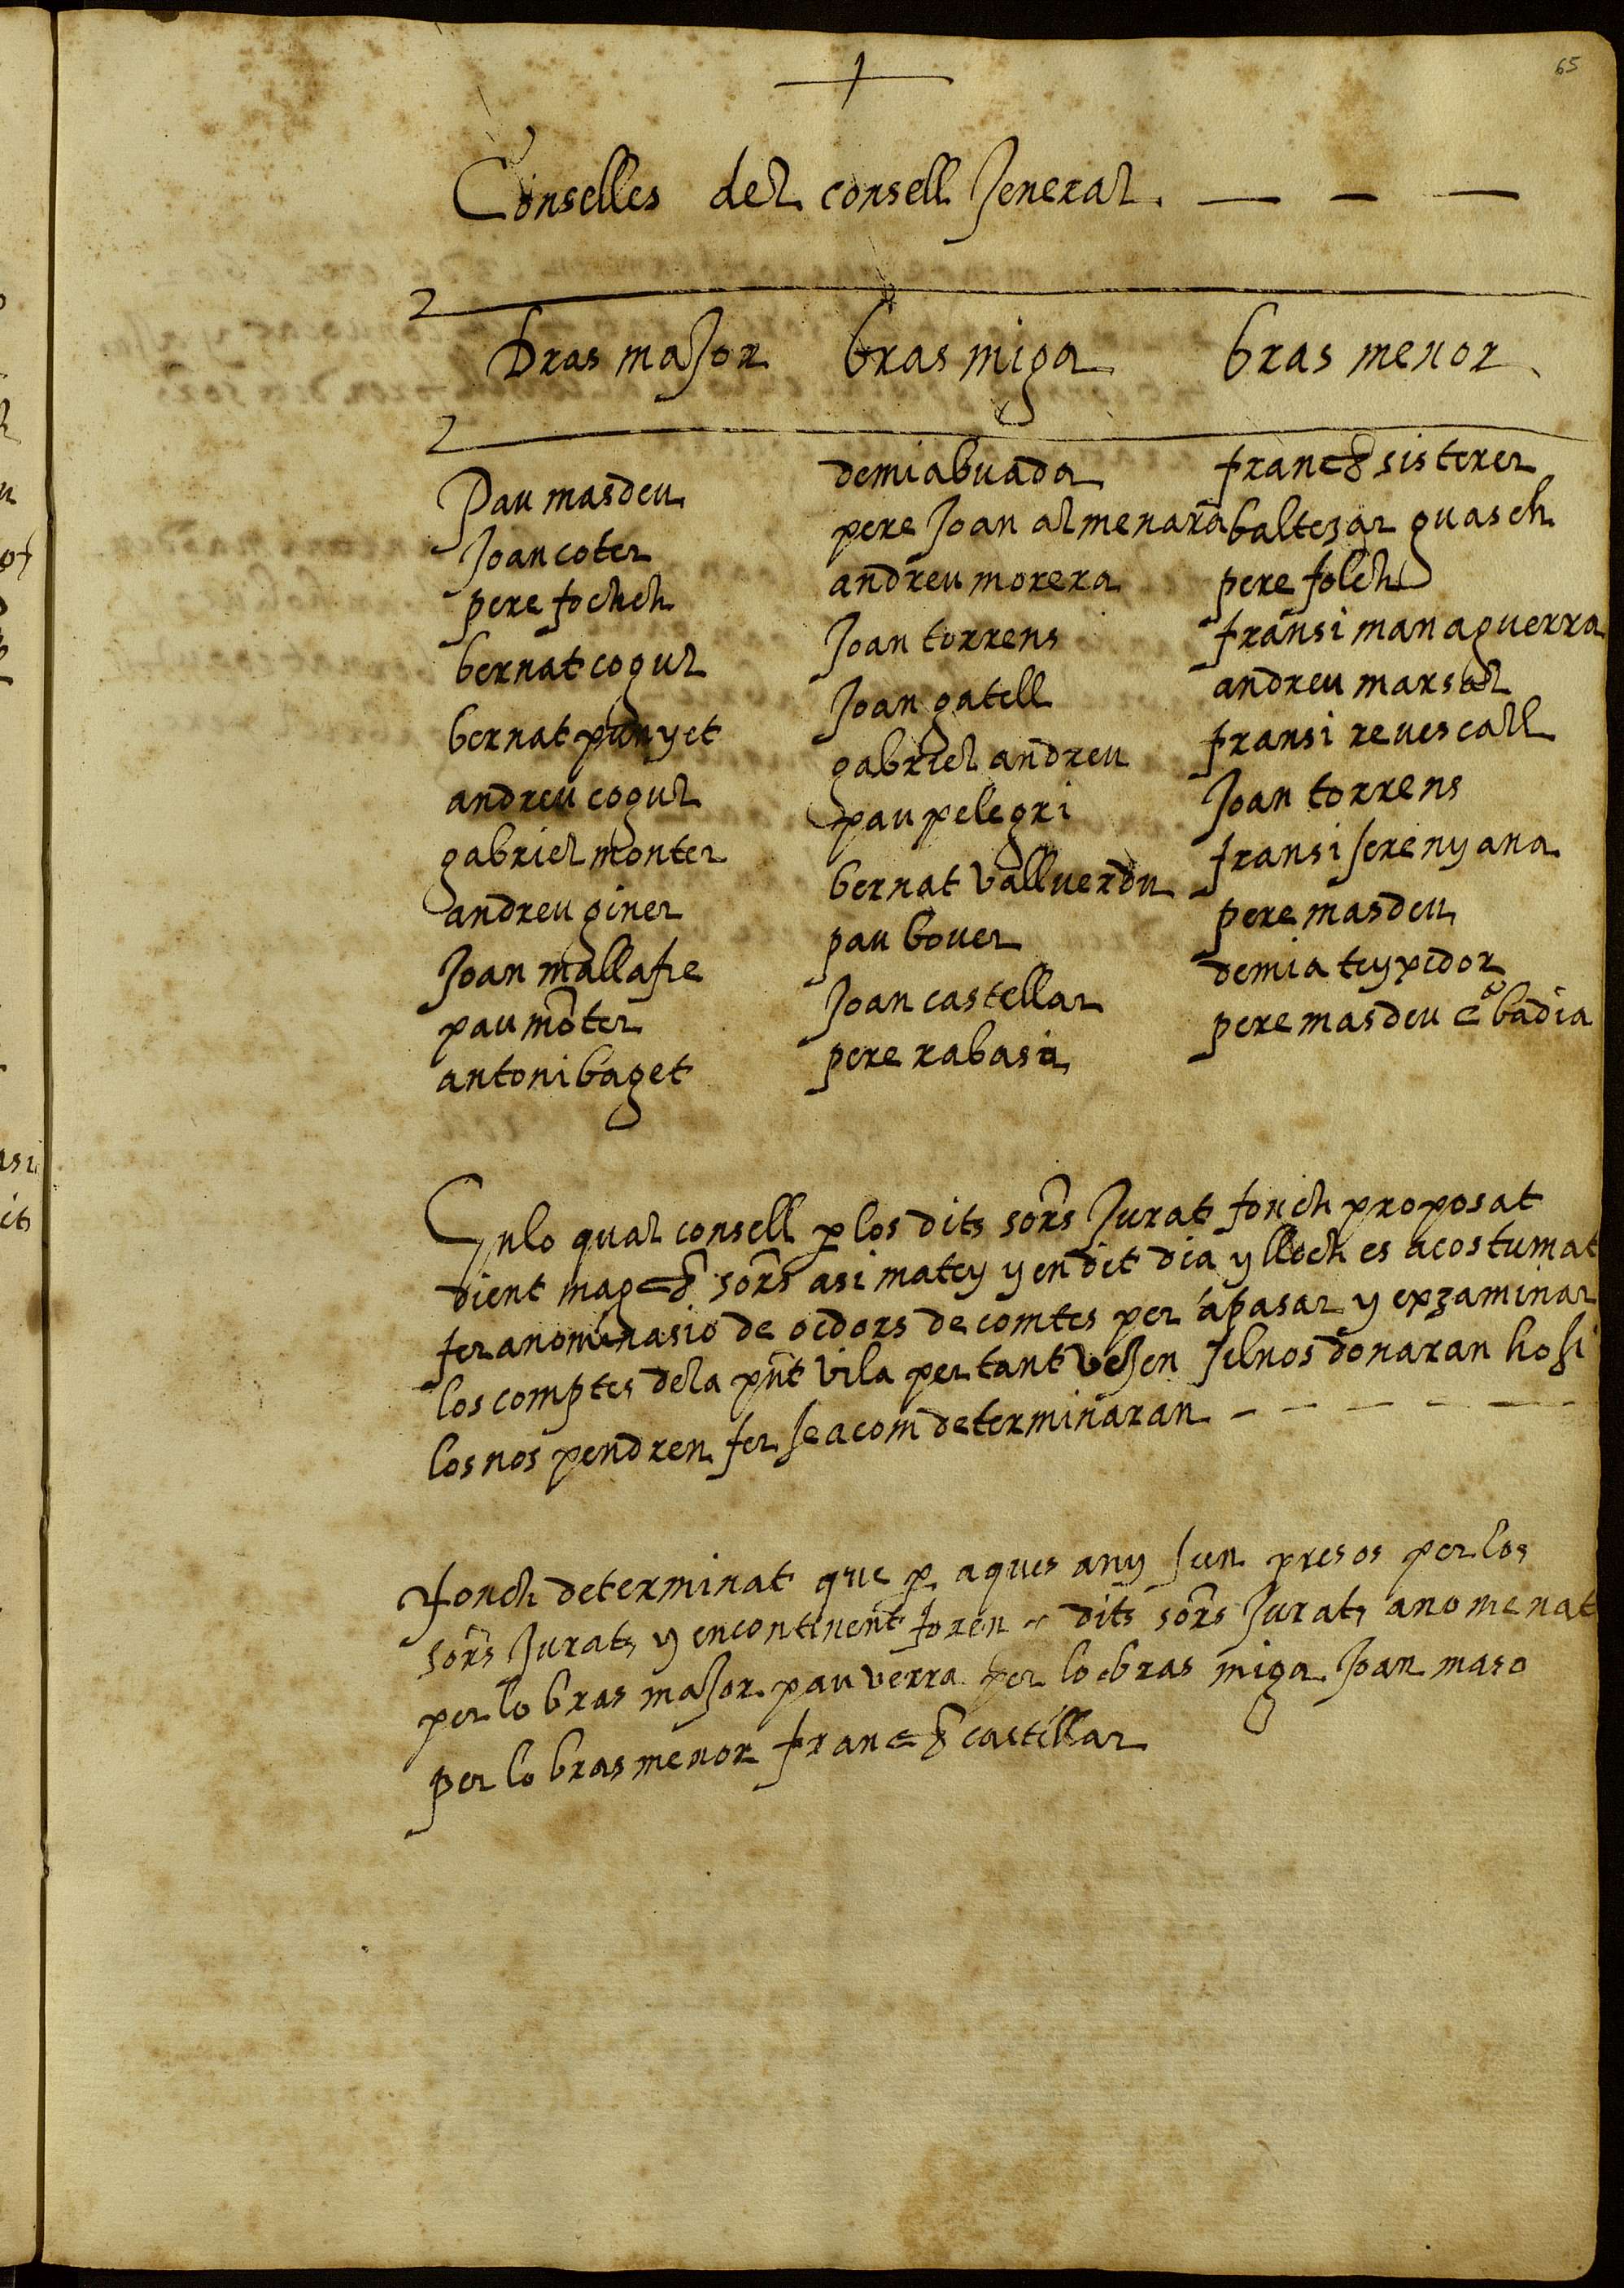 65
Conselles del consell general
bras major
bras miga
bras menor
Pau masdeu
Joan coter
pere fochch
bernat cogul
bernat punyet
andreu cogul
gabriel monter
andreu giner
Joan mallafre
pau mõter
antoni baget
demia buada
pere Joan almenara
andreu morera
Joan torrens
Joan gatell
gabriel andreu
pau pelegri
bernat vallverdu
pau bover
Joan castellar
pere rabasa
franch sisterer
baltezar guasch
pere folch
fransi managuerra
andreu marsal
fransi revescall
Joan torrens
fransi serenyana
pere masdeu
demia teyxidor
pere masdeu badia
En lo qual consell p los dits sors Jurat fonch proposat
dient magchs sors asi matey y en dit dia y lloch es acostumat
fer anominasio de oedors de comtes per apasar y exzaminar
los comptes de la pnt vila per tant vegen selnos donaran ho si
los nos pendren fer sea com determinaran
Fonch determinat que p aques any sien presos per los
sors Jurats y encontinent foren dits sors Jurats anomenat
per lo bras major pau verra per lo bras miga Joan maso
per lo bras menor franch castellar